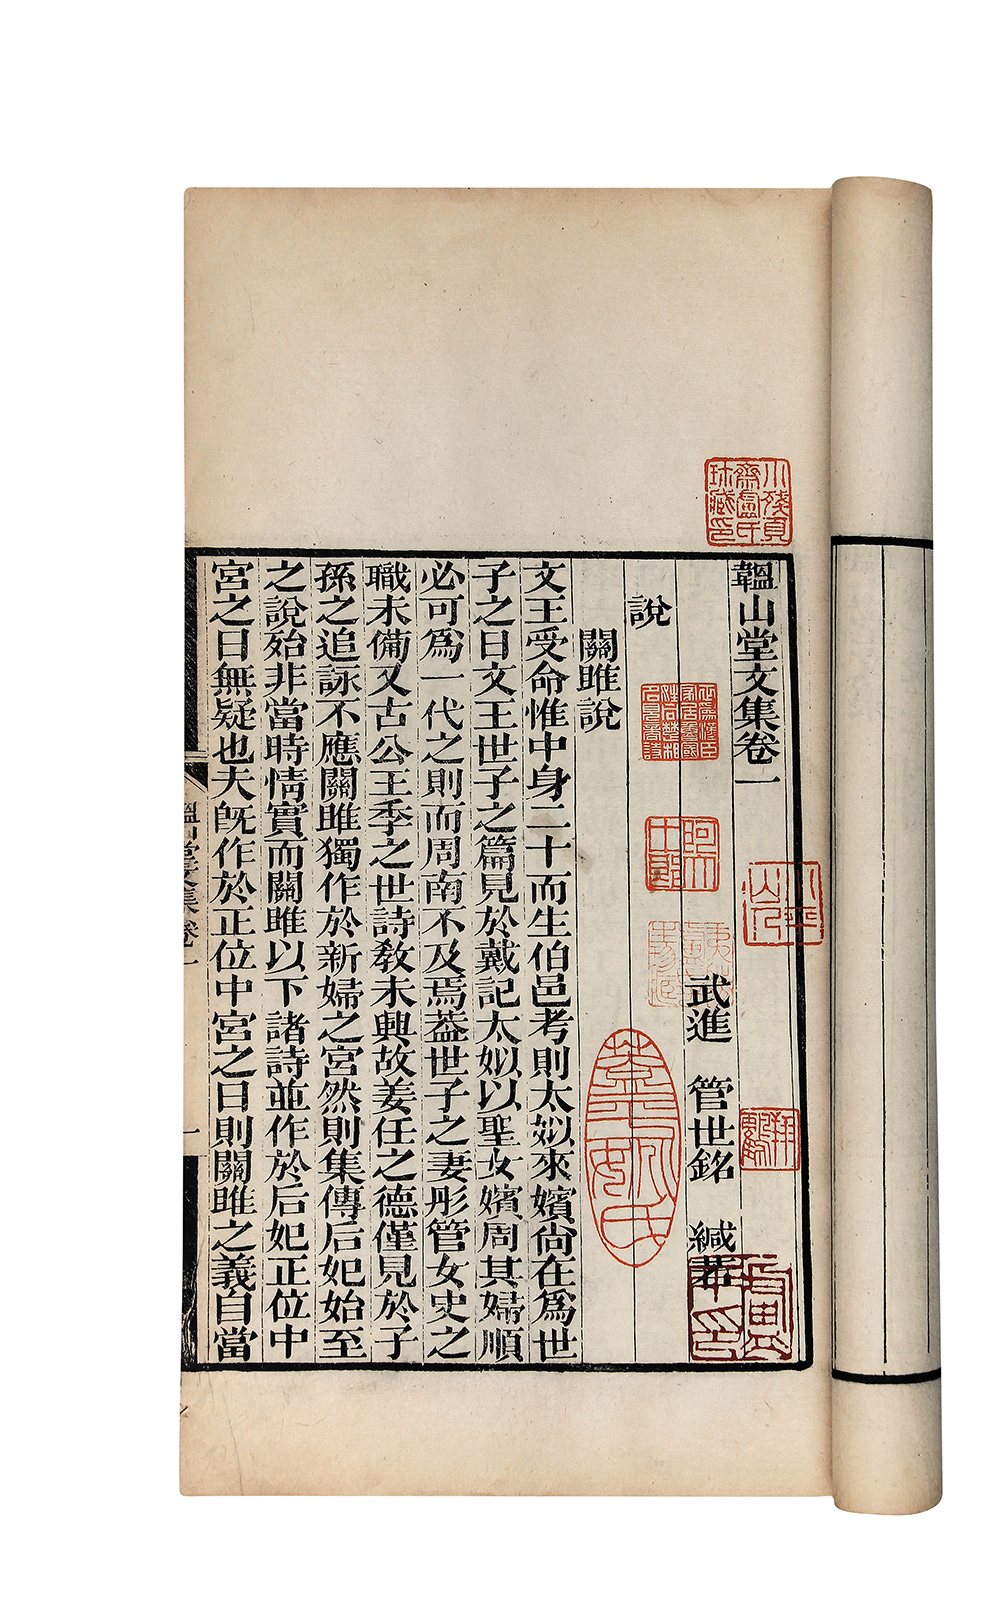 韞山堂文集卷一
武進　管世銘　緘若
說
關雎說
文王受命惟中身二十而生伯邑考則太姒來嬪尙在爲世
子之日文王世子之篇見於戴記太姒以聖女嬪周其婦順
必可爲一代之則而周南不及焉葢世子之妻彤管女史之
職未備又古公王季之世詩敎未興故姜任之德僅見於子
孫之追詠不應關雎獨作於新婦之宮然則集傳后妃始至
之說殆非當時情實而關雎以下諸詩並作於后妃正位中
宮之日無疑也夫旣作於正位中宮之日則關雎之義自當
韞山堂文集卷一
一
小殘頁齋盧氏珍藏印